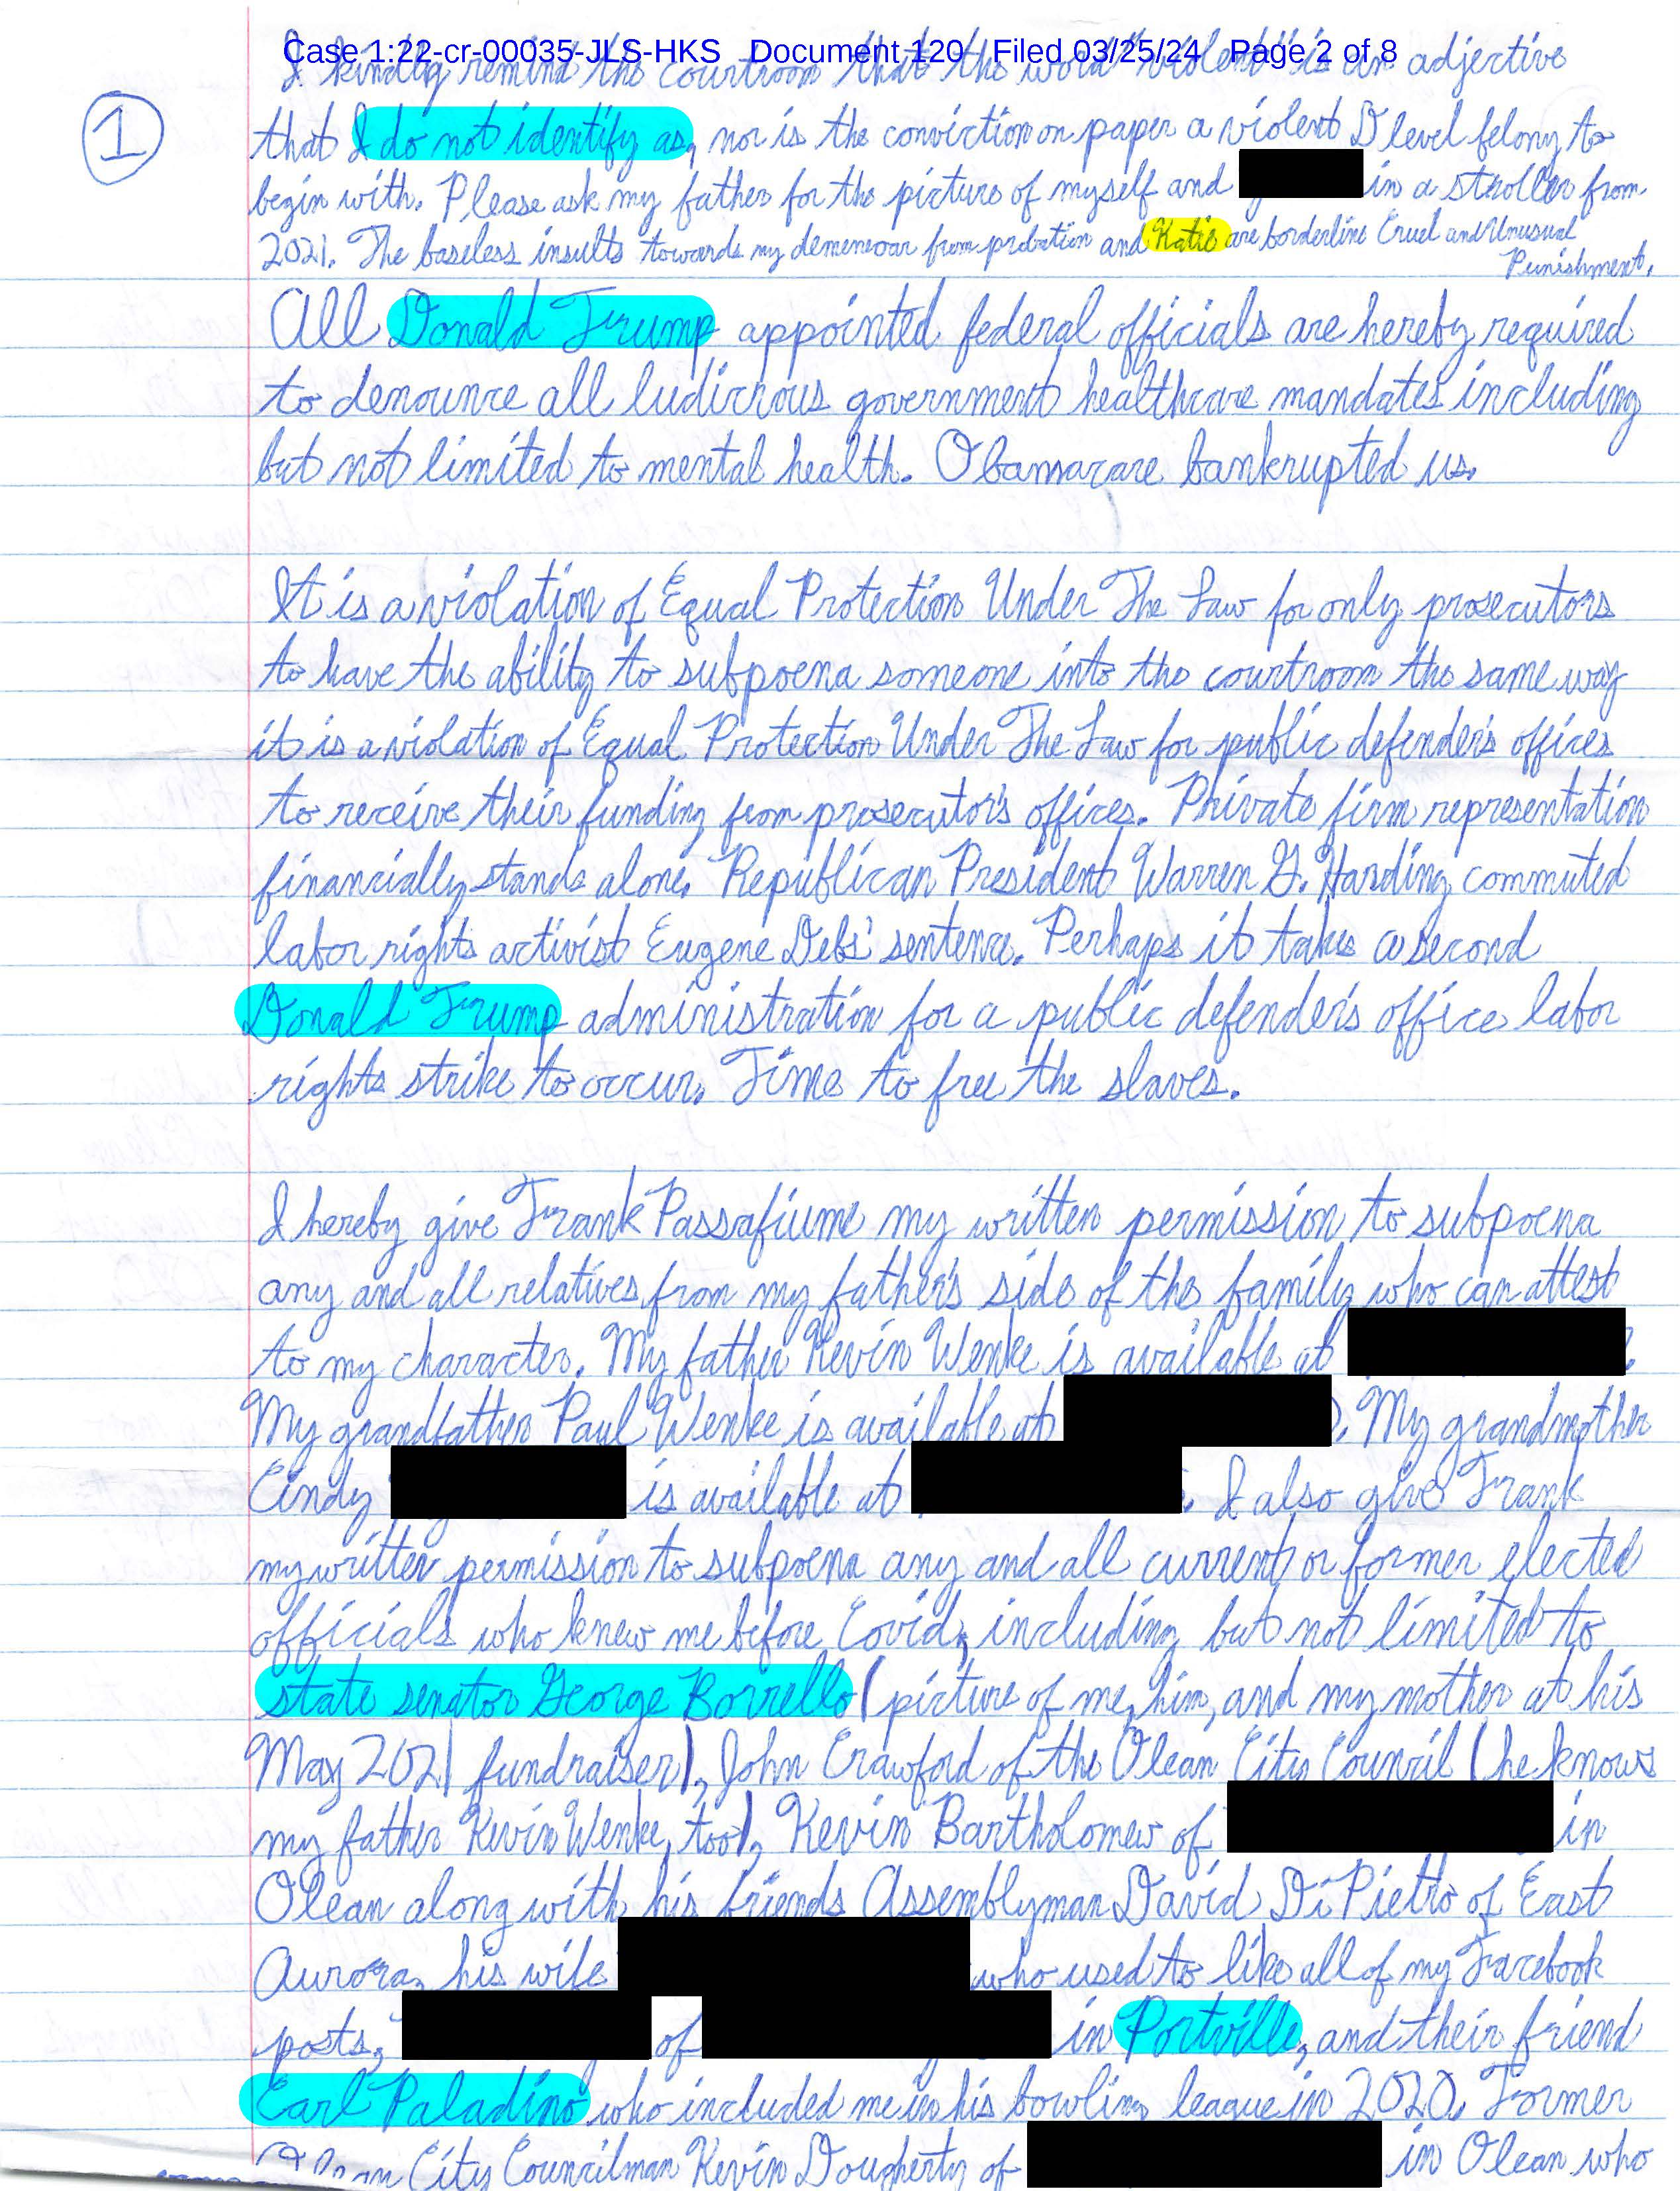 Case 1:22-cr-00035-JLS-HKS Document 120 Filed 03/25/24 Page 2 of 8
I kindly remind the courtroom that the word "violent" is an adjective
1
that I do not identify as, nor is the conviction on paper a violent D level felony to
begin with. Please ask my father for the picture of myself and in a stroller from
2021. The baseless insults towards my demeneoar from probation and Katie are borderline Cruel and Unusual
Punishment.
All Donald Trump appointed federal officials are hereby required
to denounce all ludicrous government healthcare mandates including
but not limited to mental health. Obamacare bankrupted us.
It is a violation of Equal Protection Under The Law for only prosecutors
to have the ability to subpoena someone into the courtroom the same way
it is a violation of Equal Protection Under The Law for public defender's offices
to receive their funding from prosecutor's offices. Private firm representation
financially stands alone. Republican President Warren G. Harding commuted
labor rights activist Eugene Debs' sentence. Perhaps it takes a second
Donald Trump administration for a public defender's office labor
rights strike to occur. Time to free the slaves.
I hereby give Frank Passafiume my written permission to subpoena
any and all relatives from my father's side of the family who can attest
to my character. My father Kevin Wenke is available at
My grandfather Paul Wenke is available at . My grandmother
Cindy is available at . I also give Frank
my written permission to subpoena any and all current or former elected
officials who knew me before Covid, including but not limited to
state senator George Borrello (picture of me, him, and my mother at his
May 2021 fundraiser), John Crawford of the Olean City Council (he knows
my father Kevin Wenke, too), Kevin Bartholomew of in
Olean along with his friends Assemblyman David DiPietro of East
Aurora, his wife who used to like all of my Facebook
posts, of in Portville, and their friend
Earl Paladino who included me in his bowling league in 2020. Former
City Councilman Kevin Dougherty of in Olean who